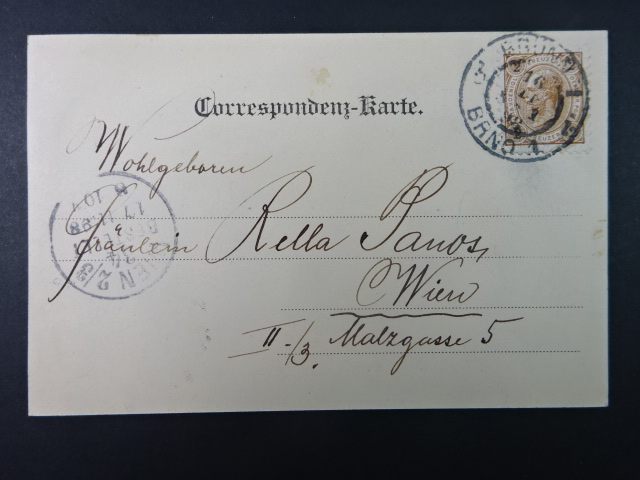 Correspondenz-Karte.
BRÜNN 1
16
1
BRNO 1
Wohlgeboren
Fräulein Rella Panos,
Wien
II-/3. Malzgasse 5
WIEN 2/3